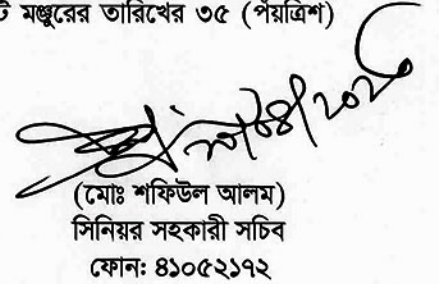 ট মঞ্জুরের তারিখের ৩৫ (পঁয়ত্রিশ)
(মোঃ শফিউল আলম)
সিনিয়র সহকারী সচিব
ফোন: ৪১০৫২১৭২